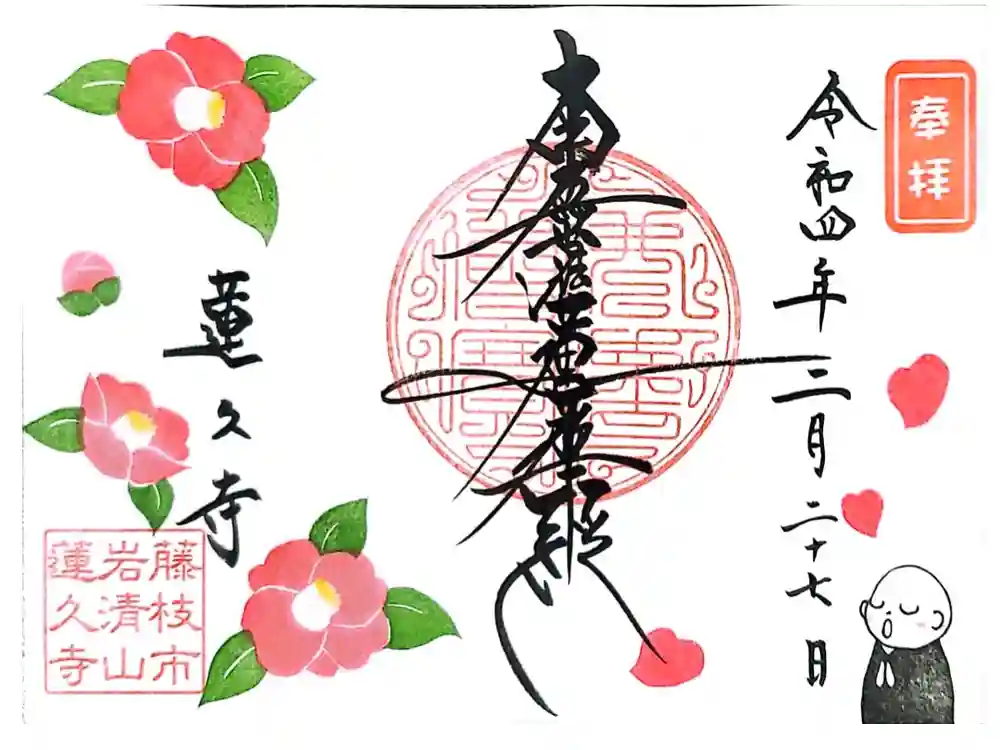 奉拝
令和四年二月二十七日
南無妙法蓮華経
蓮久寺
藤枝市
岩清山
蓮久寺